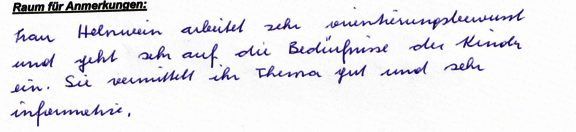 Raum für Anmerkungen:
Frau Helnwein arbeitet sehr orientierungsbewusst
und geht sehr auf die Bedürfnisse der Kinder
ein. Sie vermittelt ihr Thema gut und sehr
informativ.